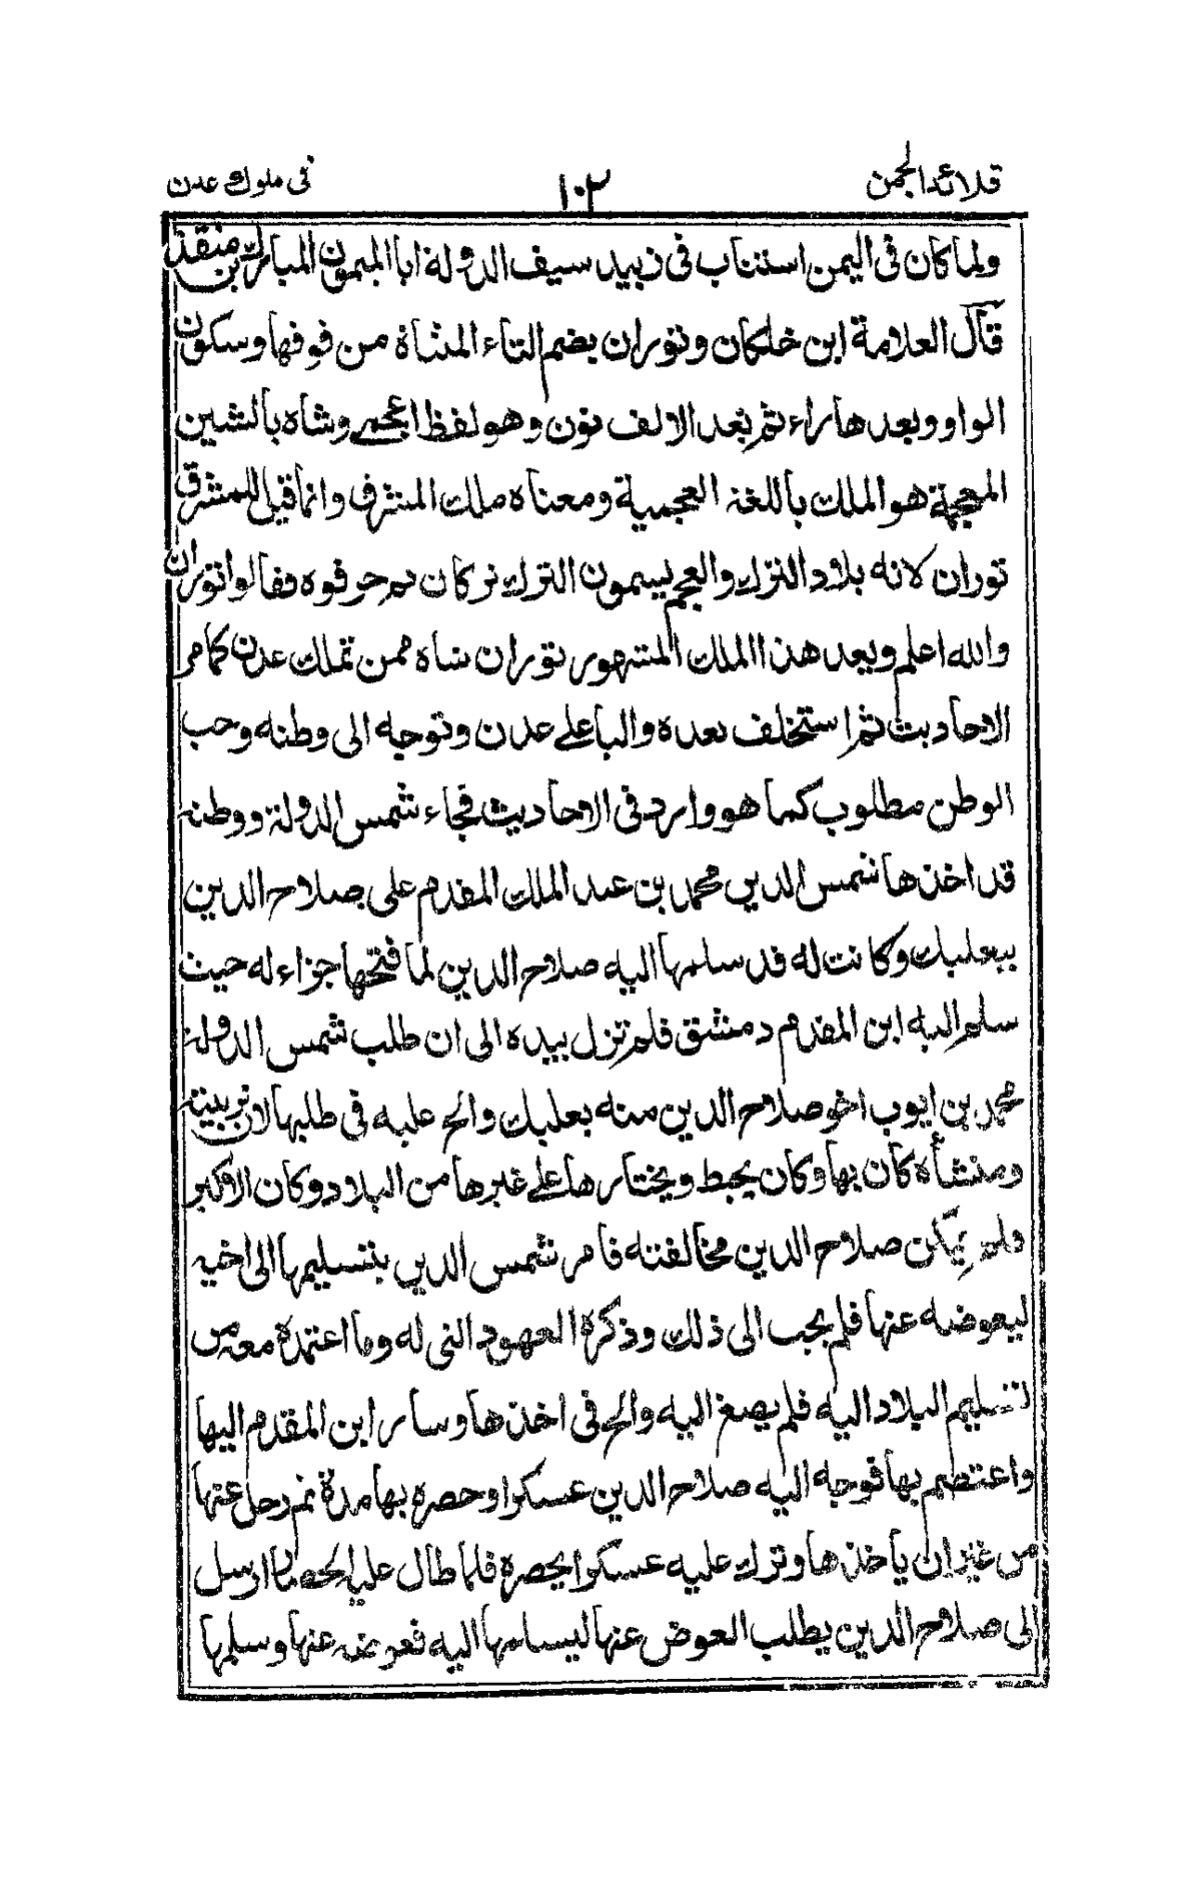 قلائد الجمن ١٠٢ في ملوك عدن
ولما كان في اليمن استناب في زبيد سيف الدولة ابا الميمون المبارك بن منقذ
قال العلامة ابن خلكان وتوران بضم التاء المثناة من فوقها وسكون
الواو وبعدها راء ثم بعد الالف نون وهو لفظ اعجمي وشاه بالشين
المعجمة هو الملك باللغة العجمية ومعناه ملك المشرق وانما قيل للمشرق
توران لانه بلاد الترك والعجم يسمون الترك تركان ثم حرفوه فقالوا توران
والله اعلم وبعد هذا الملك المشهور توران شاه ممن تملك عدن كما مر
الاحاديث ثم استخلف بعده واليا على عدن وتوجه الى وطنه وحب
الوطن مطلوب كما هو وارد في الاحاديث فجاء شمس الدولة ووطنه
قد اخذها شمس الدين محمد بن عبد الملك المقدم على صلاح الدين
ببعلبك وكانت له قد سلمها اليه صلاح الدين لما فتحها جزاء له حيث
سلم اليه ابن المقدم دمشق فلم تزل بيده الى ان طلب شمس الدولة
محمد بن ايوب اخو صلاح الدين منه بعلبك والح عليه في طلبها لان تربيته
ومنشأه كان بها وكان يحبط ويختارها على غيرها من البلاد وكان الاكبر
ولم يمكن صلاح الدين مخالفته فامر شمس الدين بتسليمها الى اخيه
ليعوضه عنها فلم يجب الى ذلك وذكرة العهود التي له وما اعتمدة معه من
تسليم البلاد اليه فلم يصغ اليه والح في اخذها وسار ابن المقدم اليها
واعتصم بها فوجه اليه صلاح الدين عسكرا وحصره بها مدة ثم رحل عنها
من غير ان ياخذها وترك عليه عسكرا يحصرة فلما طال عليه الحصار ارسل
الى صلاح الدين يطلب العوض عنها ليسلمها اليه فعوضه عنها وسلمها